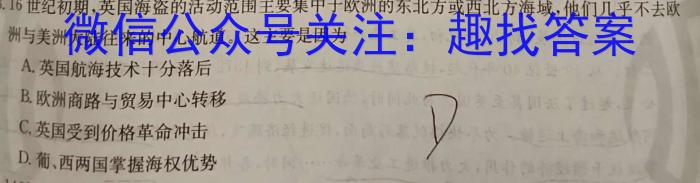 16世纪初期,英国海盗的活动范围主要集中于欧洲的东北方或西北方海域,他们几乎不去欧
微信公众号关注:趣找答案
洲与美洲大陆往来的中心航道。这主要是因为
A.英国航海技术十分落后
B.欧洲商路与贸易中心转移
C.英国受到价格革命冲击
D.葡、西两国掌握海权优势
D